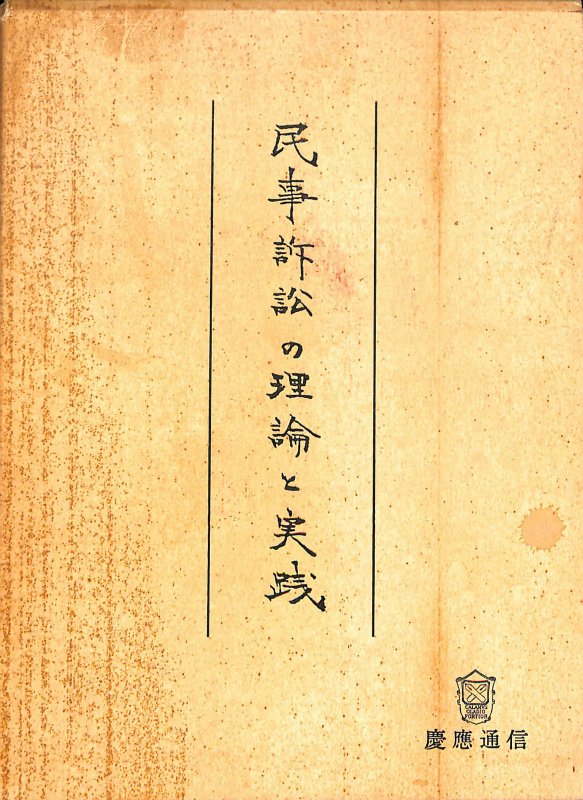 民事訴訟の理論と実践
CALAMVS
GLADIO
FORTIOR
慶應通信